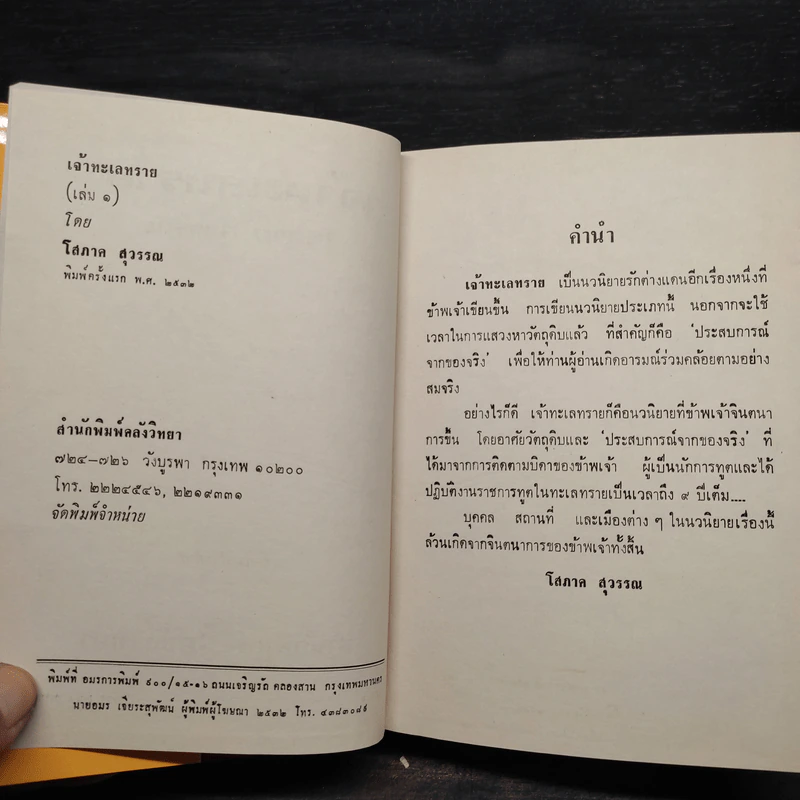 เจ้าทะเลทราย
(เล่ม ๑)
โดย
โสภาค สุวรรณ
พิมพ์ครั้งแรก พ.ศ. ๒๕๓๒
สำนักพิมพ์คลังวิทยา
๗๒๔–๗๒๖ วังบูรพา กรุงเทพ ๑๐๒๐๐
โทร. ๒๒๒๔๕๔๖, ๒๒๑๙๓๓๑
จัดพิมพ์จำหน่าย
พิมพ์ที่ อมรการพิมพ์ ๙๐๐/๑๕-๑๖ ถนนเจริญรัถ คลองสาน กรุงเทพมหานคร
นายอมร เจียระสุพัฒน์ ผู้พิมพ์ผู้โฆษณา ๒๕๓๒ โทร. ๔๓๘๓๐๘๙
คำนำ
เจ้าทะเลทราย เป็นนวนิยายรักต่างแดนอีกเรื่องหนึ่งที่
ข้าพเจ้าเขียนขึ้น การเขียนนวนิยายประเภทนี้ นอกจากจะใช้
เวลาในการแสวงหาวัตถุดิบแล้ว ที่สำคัญก็คือ ‘ประสบการณ์
จากของจริง’ เพื่อให้ท่านผู้อ่านเกิดอารมณ์ร่วมคล้อยตามอย่าง
สมจริง
อย่างไรก็ดี เจ้าทะเลทรายก็คือนวนิยายที่ข้าพเจ้าจินตนา
การขึ้น โดยอาศัยวัตถุดิบและ ‘ประสบการณ์จากของจริง’ ที่
ได้มาจากการติดตามบิดาของข้าพเจ้า ผู้เป็นนักการทูตและได้
ปฏิบัติงานราชการทูตในทะเลทรายเป็นเวลาถึง ๙ ปีเต็ม....
บุคคล สถานที่ และเมืองต่าง ๆ ในนวนิยายเรื่องนี้
ล้วนเกิดจากจินตนาการของข้าพเจ้าทั้งสิ้น
โสภาค สุวรรณ